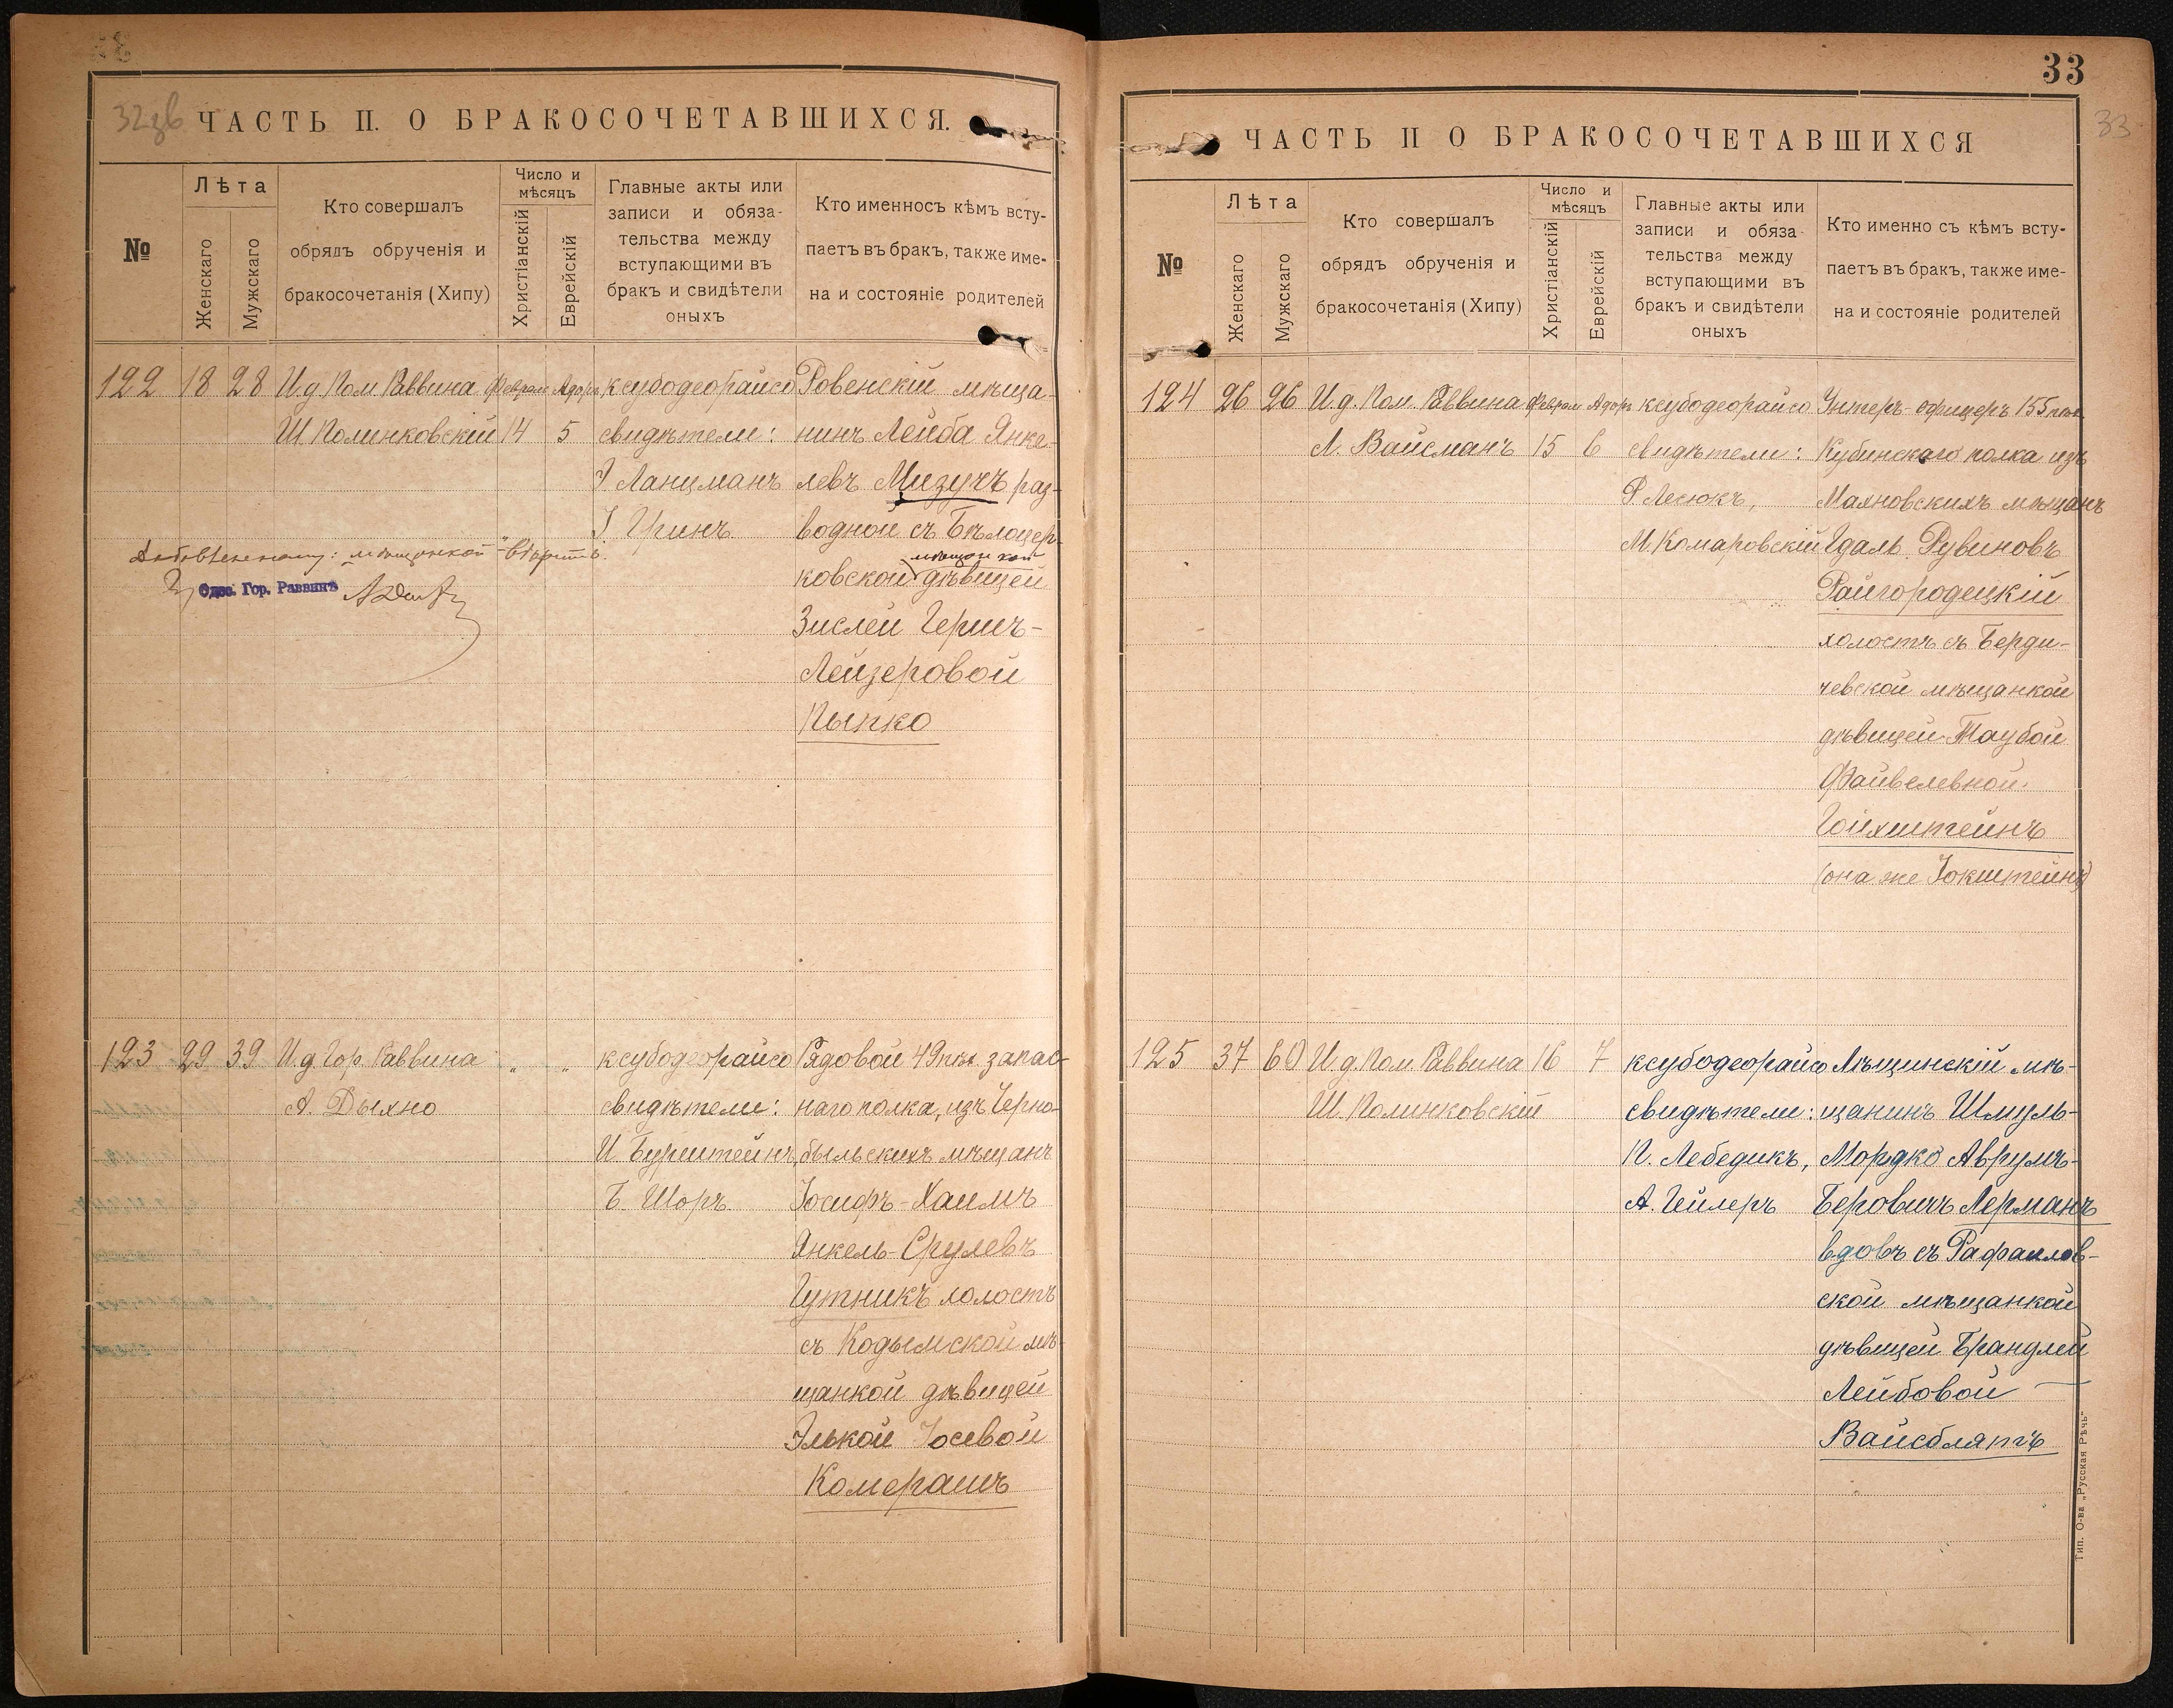 32зв
ЧАСТЬ П. О БРАКОСОЧЕТАВШИХСЯ.
№
Лѣта
Женскаго
Мужскаго
Кто совершалъ
обрядъ обрученія и
бракосочетанія (Хипу)
Число и
мѣсяцъ
Христіанскій
Еврейскій
Главные акты или
записи и обяза-
тельства между
вступающими въ
бракъ и свидѣтели
оныхъ
Кто именносъ кѣмъ всту-
паетъ въ бракъ, также име-
на и состояніе родителей
122
18
28
И.д Пом Раввина
Ш Полинковскій
Феврал
14
Адоръ
5
ксубодеорайсо
свидѣтели:
Ланцманъ
Гринъ
Ровенскій мѣща-
нинъ Лейба Янке-
левъ Мизучъ раз-
водной съ Бѣлоцер-
ковской мѣщанкой дѣвицей
Зислей Герш-
Лейзеровой
Пыпко
мѣщанкой вѣрить
Одес. Гор. Раввинъ
123
29
39
И.д Гор. Раввина
А. Дыхно
"
"
ксубодеорайсо
свидѣтели:
И. Бурштейнъ,
Б. Шоръ.
Рядовой 49 пѣх. запас-
наго полка, изъ Черно-
быльскихъ мѣщанъ
Іосифъ-Хаимъ
Янкель-Срулевъ
Гутникъ холостъ
съ Кодымской мѣ-
щанкой дѣвицей
Элькой Іосевой
Комерашъ
33
33
ЧАСТЬ П О БРАКОСОЧЕТАВШИХСЯ
№
Лѣта
Женскаго
Мужскаго
Кто совершалъ
обрядъ обрученія и
бракосочетанія (Хипу)
Число и
мѣсяцъ
Христіанскій
Еврейскій
Главные акты или
записи и обяза-
тельства между
вступающими въ
бракъ и свидѣтели
оныхъ
Кто именно съ кѣмъ всту-
паетъ въ бракъ, также име-
на и состояніе родителей
124
26
26
И.д. Пом. Раввина
Л. Вайсманъ
Феврал
15
Адоръ
6
ксубодеорайсо
свидѣтели:
Р. Лесюкъ,
М. Комаровскій
Унтеръ-офицеръ 155 пѣх.
Кубинскаго полка изъ
Махновскихъ мѣщанъ
Гдаль Рувиновъ
Райгородецкій
холостъ съ Берди-
чевской мѣщанкой
дѣвицей Таубой
Файвелевной
Гойхштейнъ
(она же Іокштейнъ)
125
37
60
И.д. Пом. Раввина
Ш. Полинковскій
16
7
ксубодеорайсо
свидѣтели:
П. Лебедикъ,
А. Гейлеръ
Лѣщинскій мѣ-
щанинъ Шмуль-
Мордко Аврумъ-
Беровичъ Лерманъ
вдовъ съ Рафаилов-
ской мѣщанкой
дѣвицей Брандлей
Лейбовой
Вайсблятъ
Тип. О-ва „Русская Рѣчь"